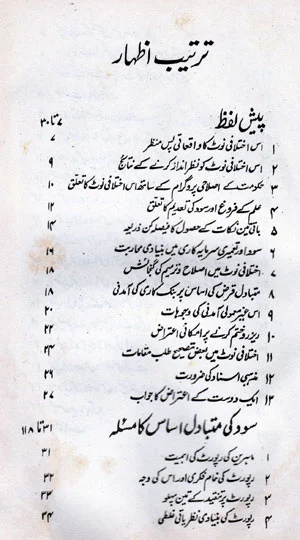 ترتیب اظہار
پیش لفظ ۷ تا ۳۰
۱ اس اختلافی نوٹ کا واقعاتی پس منظر ۷
۲ اس اختلافی نوٹ کو نظر انداز کرنے کے نتائج ۹
۳ حکومت کے اصلاحی پروگرام کے ساتھ اس اختلافی نوٹ کا تعلق ۱۰
۴ علم کے فروغ اور سود کی تعدیم کا تعلق ۱۲
۵ باقی تین نکات کے حصول کا فیصلہ کن ذریعہ ۱۴
۶ سود اور تعمیری سرمایہ کاری میں بنیادی محاربت ۱۶
۷ اختلافی نوٹ میں اصلاح و ترمیم کی گنجائش ۱۸
۸ متبادل قرض کی اساس پر بینک کاری کی آمدنی ۱۸
۹ اس غیر معمولی آمدنی کی وجوہات ۲۰
۱۰ ریزرو ختم کرنے پر امکانی اعتراض ۲۲
۱۱ اختلافی نوٹ میں بعض تصحیح طلب مقامات ۲۴
۱۲ مذہبی اسناد کی ضرورت ۲۶
۱۳ ایک دوست کے اعتراض کا جواب ۲۷
سود کی متبادل اساس کا مسئلہ ۳۱ تا ۱۱۸
۱ ماہرین کی رپورٹ کی اہمیت ۳۱
۲ رپورٹ کی خام فکری اور اس کی وجہ ۳۲
۳ رپورٹ پر تنقید کے تین پہلو ۳۳
۴ رپورٹ کی بنیادی نظریاتی غلطی ۳۴